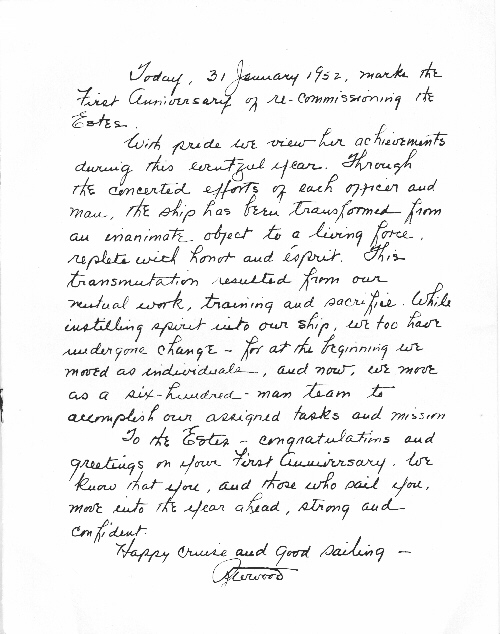 Today, 31 January 1952, marks the
First Anniversary of re-commissioning the
Estes.
With pride we view her achievements
during this eventful year. Through
the concerted efforts of each officer and
man, the ship has been transformed from
an inanimate object to a living force,
replete with honor and esprit. This
transmutation resulted from our
mutual work, training and sacrifice. While
instilling spirit into our ship, we too have
undergone change - for at the beginning we
moved as individuals -, and now, we move
as a six-hundred-man team to
accomplish our assigned tasks and mission
To the Estes - congratulations and
greetings on your First Anniversary. We
know that you, and those who sail you,
move into the year ahead, strong and
confident.
Happy cruise and good sailing -